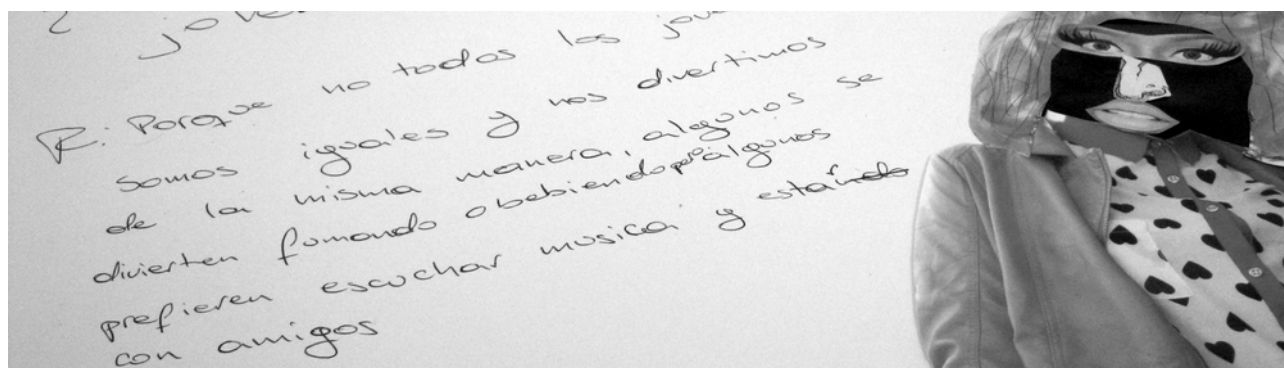 R: Porque no todos los
somos iguales y nos divertimos
de la misma manera, algunos se
divierten fumando o bebiendo pero algunos
prefieren escuchar musica y estar
con amigos